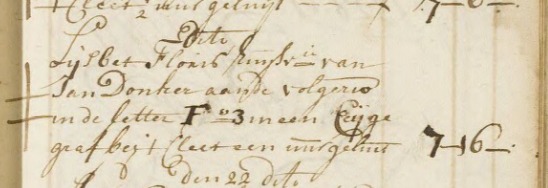 Cleet ½ uur geluijt 7–6–
Dito
Lijsbet Floris huijsv: van
Jan Donker aande volger:o
inde letter F n:o 3 in een Eijge
graf beijt Cleet een uur geluit 7–16–.
den 22 dito